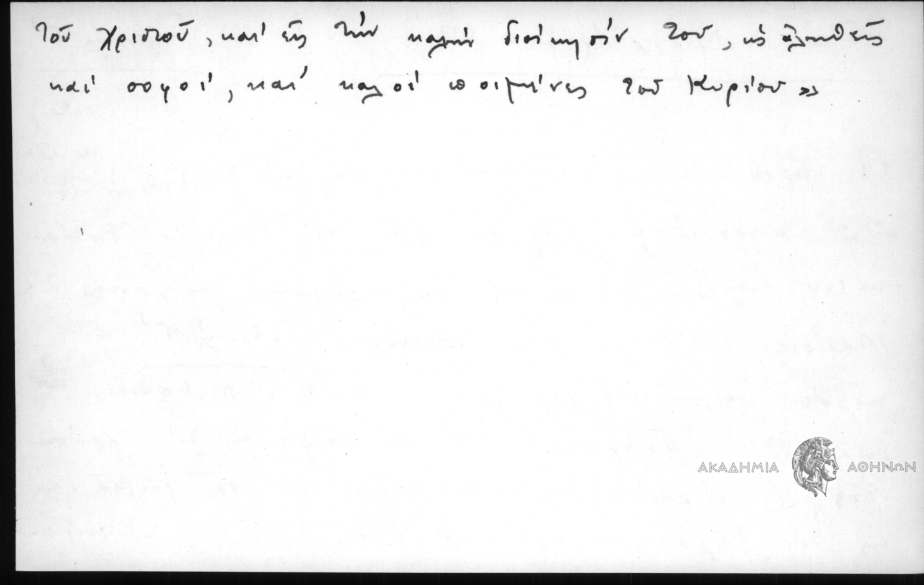 τοῦ Χριστοῦ, καὶ εἰς τὴν καλὴν διοίκησίν του, ὡς ἀληθεῖς
καὶ σοφοί, καὶ καλοὶ ποιμένες τοῦ Κυρίου»
ΑΚΑΔΗΜΙΑ ΑΘΗΝΩΝ